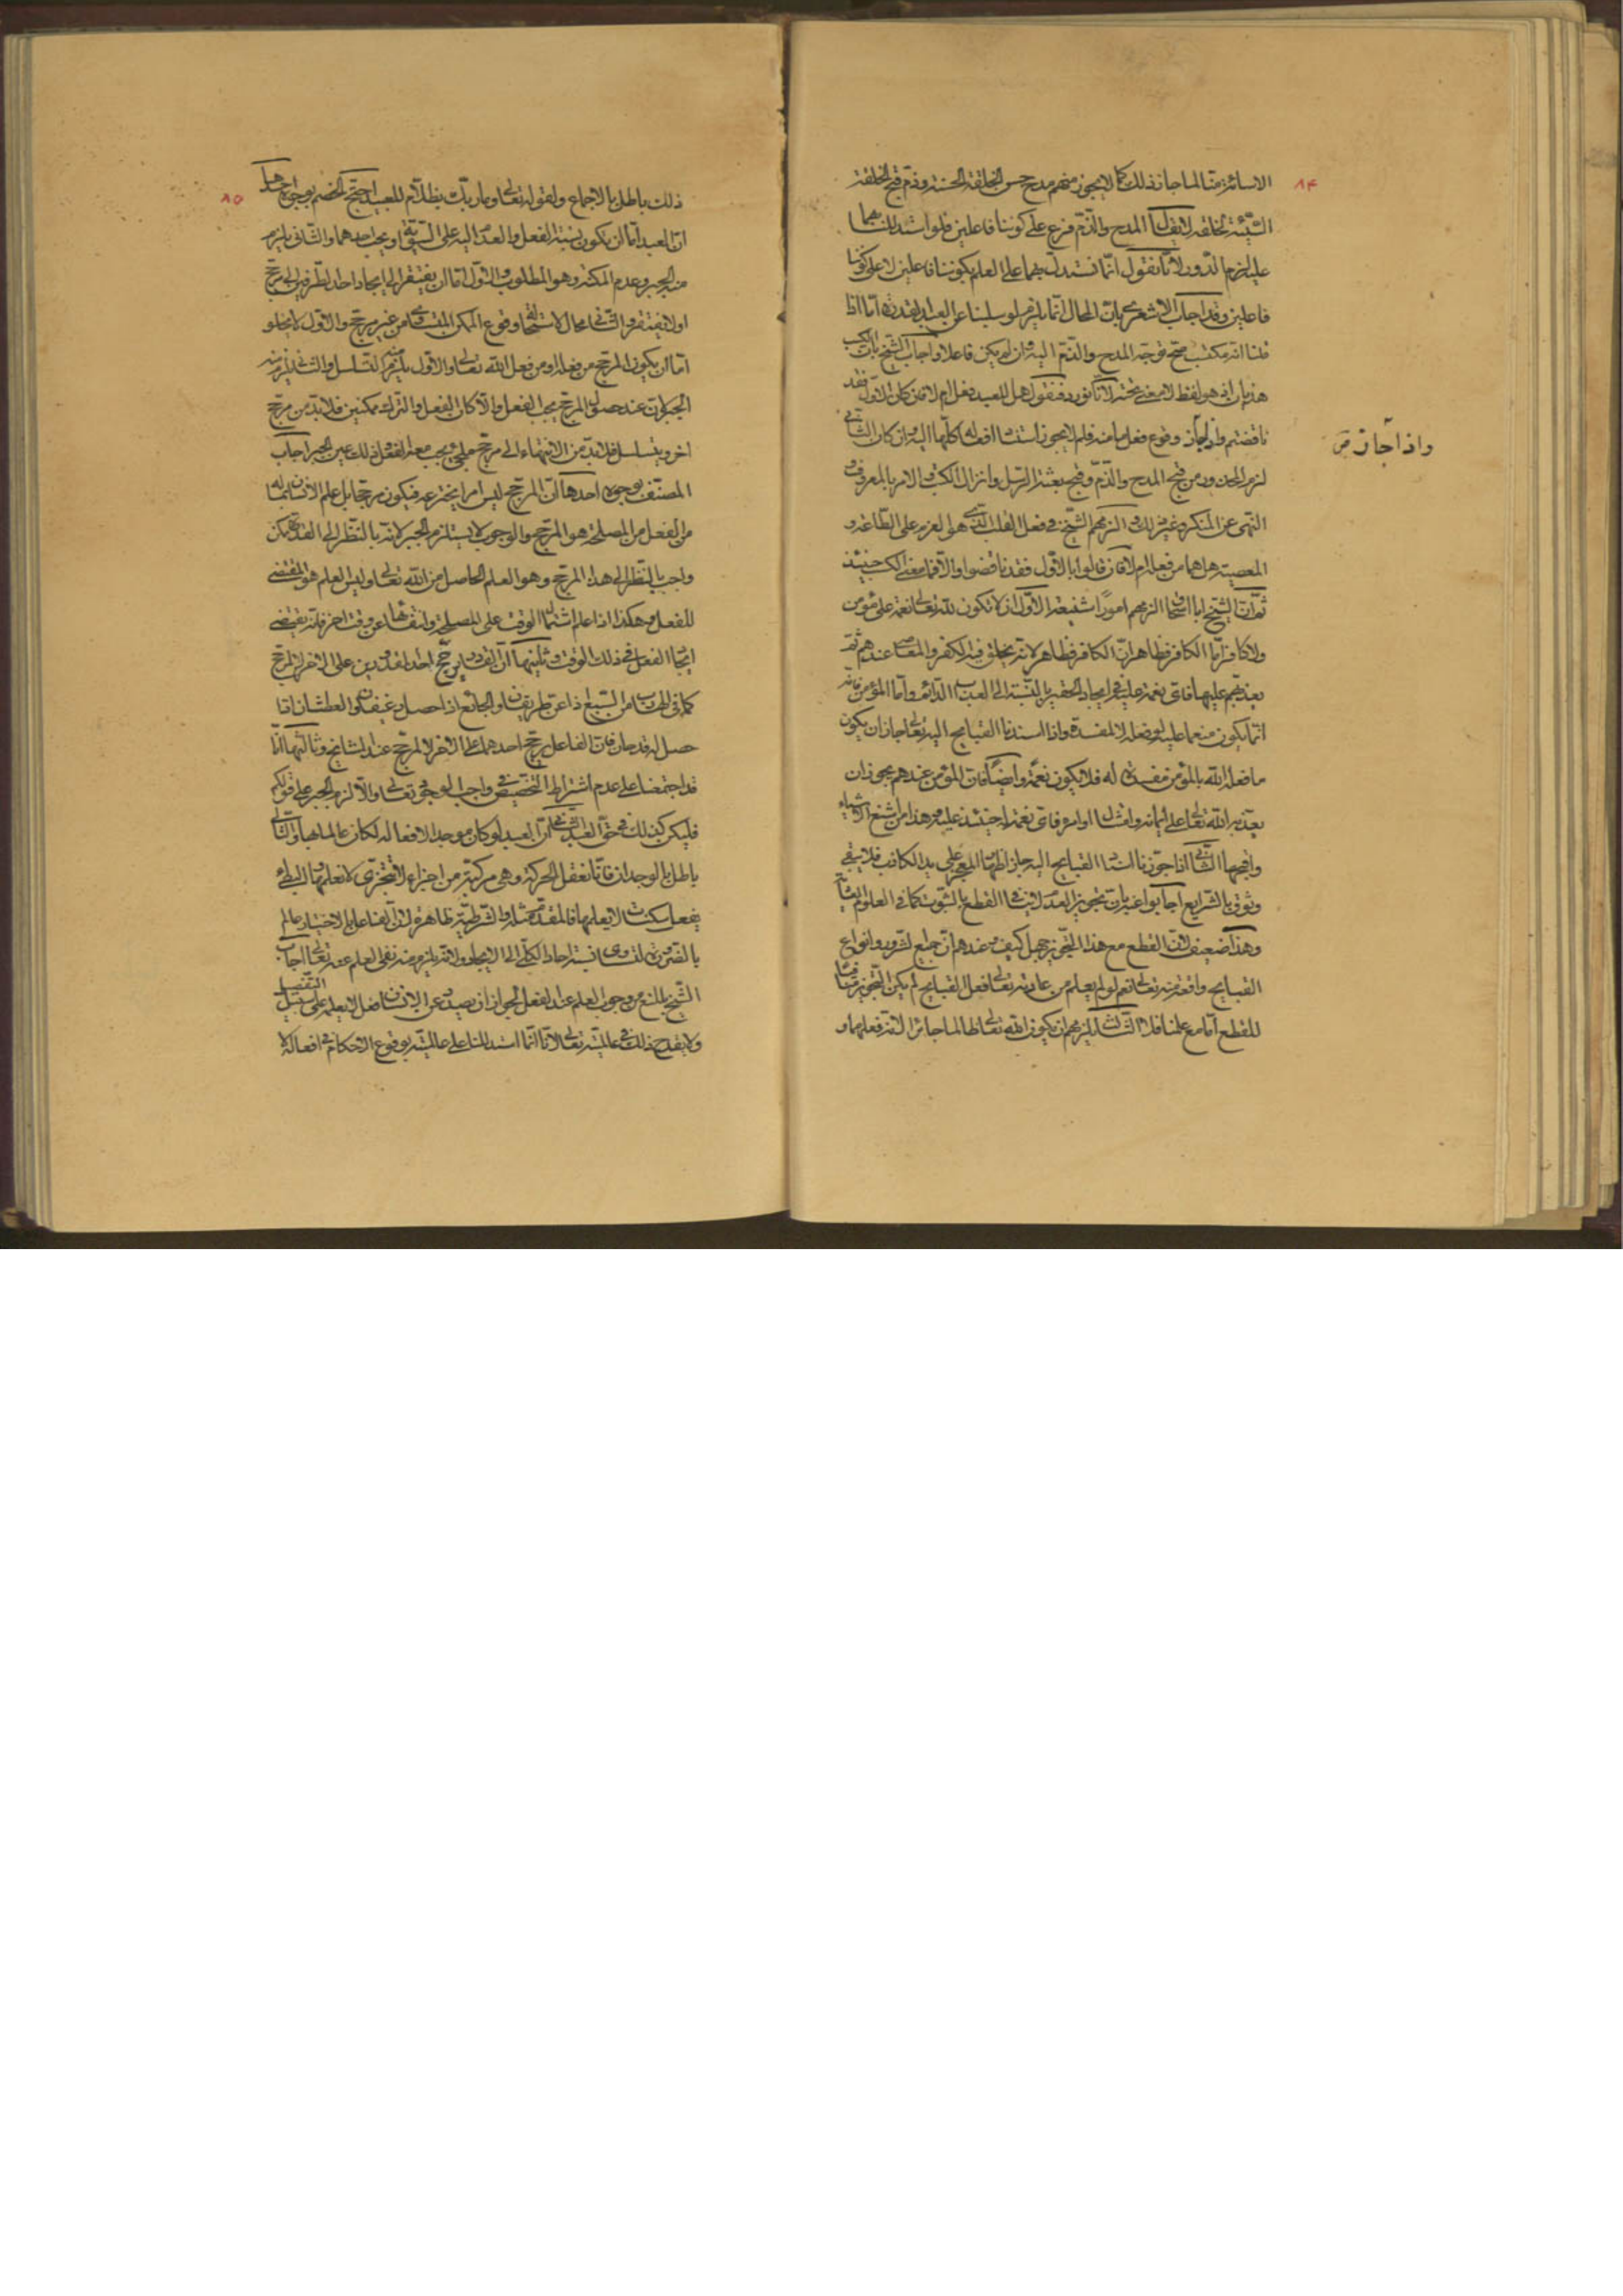 ٨٤
الانسان منا لما جاز ذلك كما لا يجوز منهم مدح حسن الخلقة الحسنة وذم قبح الخلقة
السيئة لخلقه لا يقال المدح والذم فرع على كوننا فاعلين فلو استدللنا بهما
عليه لزم الدور لانا نقول انما نستدل بهما على العلم بكوننا فاعلين لا على كوننا
فاعلين وقد اجاب الاشعري بان المحال انما يلزم لو سلبنا عن العبد القدرة اما اذا
قلنا انه مكتسب صح توجه المدح والذم اليه وان لم يكن فاعلا واجاب الشيخ بان الكسب
هذيان اذ هو لفظ لا معنى تحته لانا نورده فنقول هل للعبد فعل ام لا فان كان الاول فقد
ناقضتم واذا جاز وقوع فعل ما منه فلم لا يجوز استناد افعاله كلها اليه وان كان الثاني
لزم المحذور من قبح المدح والذم وقبح بعثة الرسل وانزال الكتب والامر بالمعروف و
النهي عن المنكر وغير ذلك والزمهم الشيخ في فعل القلب الذي هو العزم على الطاعة و
المعصية هل هما من فعله ام لا فان قالوا بالاول فقد ناقضوا والا فما معنى الكسب حينئذ
ثم ان الشيخ ابا اسحاق الزمهم امورا شنيعة الاول ان لا تكون لله تعالى نعمة على مؤمن
ولا كافر اما الكافر فظاهر لانه يخلق فيه الكفر والمعاصي عندهم ثم
يعذبهم عليها فاي نعمة عليه في ايجاد الحقير بالنسبة الى العذاب الدائم واما المؤمن فانه
انما يكون منعما عليه لو فعله لا لمفسدة واذا اسندنا القبايح اليه تعالى جاز ان يكون
ما فعله الله بالمؤمن مفسدة له فلا يكون نعمة وايضا فان المؤمن عندهم يجوز ان
يعذبه الله تعالى على ايمانه وامتثال اوامره فاي نعمة له حينئذ عليه وهذا من اشنع الاشياء
واقبحها الثاني اذا جوزنا استناد القبايح اليه جاز اظهار المعجز على يد الكاذب فلا يبقى
وثوق بالشرايع اجابوا عنه بان تجويز العدم لا ينافي القطع بالثبوت كما في العلوم العادية
وهذا ضعيف فان القطع مع هذا التجويز جهل كيف وعندهم ان جميع الشرور وانواع
القبايح واقعة منه تعالى نعم لو لم يعلم من عادته تعالى فعل القبايح لم يكن التجويز منافيا
للقطع اما مع علمنا فلا الثالث يلزمهم ان يكون الله تعالى ظالما جائرا لانه فعلهما و
واذا جاز ص
٨٥
ذلك باطل بالاجماع ولقوله تعالى وما ربك بظلام للعبيد احتج الخصم بوجوه احدها
ان العبد اما ان يكون نسبة الفعل والعدم اليه على السوية او يجب احدهما والثاني يلزم
منه الجبر وعدم المكنة وهو المطلوب والاول اما ان يفتقر الى ايجاد احد الطرفين الى مرجح
او لا يفتقر والثاني محال لاستحالة وقوع الممكن المتساوي من غير مرجح والاول لا يخلو
اما ان يكون المرجح من فعله او من فعل الله تعالى والاول يلزم منه التسلسل والثاني يلزم منه
الجبر لان عند حصول المرجح يجب الفعل والا كان الفعل والترك ممكنين فلا بد من مرجح
اخر ويتسلسل فلا بد من الانتهاء الى مرجح ملجئ يجب معه الفعل وذلك عين الجبر اجاب
المصنف بوجوه احدها ان المرجح ليس امرا يخترعه فيكون مرجحا بل علم الانسان بما له
من الفعل من المصلحة هو المرجح والوجوب لا يستلزم الجبر لانه بالنظر الى القدرة ممكن
واجب بالنظر الى هذا المرجح وهو العلم الحاصل من الله تعالى وليس العلم هو المقتضي
للفعل وهكذا اذا علم اشتمال الوقت على المصلحة وانتفائها عن وقت اخر فانه يقتضي
ايجاد الفعل في ذلك الوقت وثانيها ان القادر يرجح احد المقدورين على الاخر لا لمرجح
كما في الهارب من السبع اذا عن له طريقان والجائع اذا حصل له رغيفان والعطشان اذا
حصل له قدحان فان الفاعل يرجح احدهما على الاخر لا لمرجح عند المشايخ وثالثها انا
قد اجتمعنا على عدم اشتراط التخصيص في واجب الوجود تعالى والا لزم الجبر على قولكم
فليكن كذلك في حق العبد الثاني ان العبد لو كان موجدا لافعاله لكان عالما بها والتالي
باطل بالوجدان فانا نفعل الحركة وهي مركبة من اجزاء لا تتجزى لا نعلمها والبطئ
يفعل سكنات لا يعلمها فالمقدم مثله والشرطية ظاهرة لان الفاعل بالاختيار عالم
بالضرورة لتساوي نسبة احاد الكلي الى الايجاد ولانه يلزم منه نفي العلم عنه تعالى اجاب
الشيخ بالمنع من وجوب العلم عند الفعل لجواز ان يصدر عن الانسان فعل لا يعلمه على سبيل التفصيل
ولا يقدح ذلك في عالميته تعالى لانا انما استدللنا على عالميته بوقوع الاحكام في افعاله لا